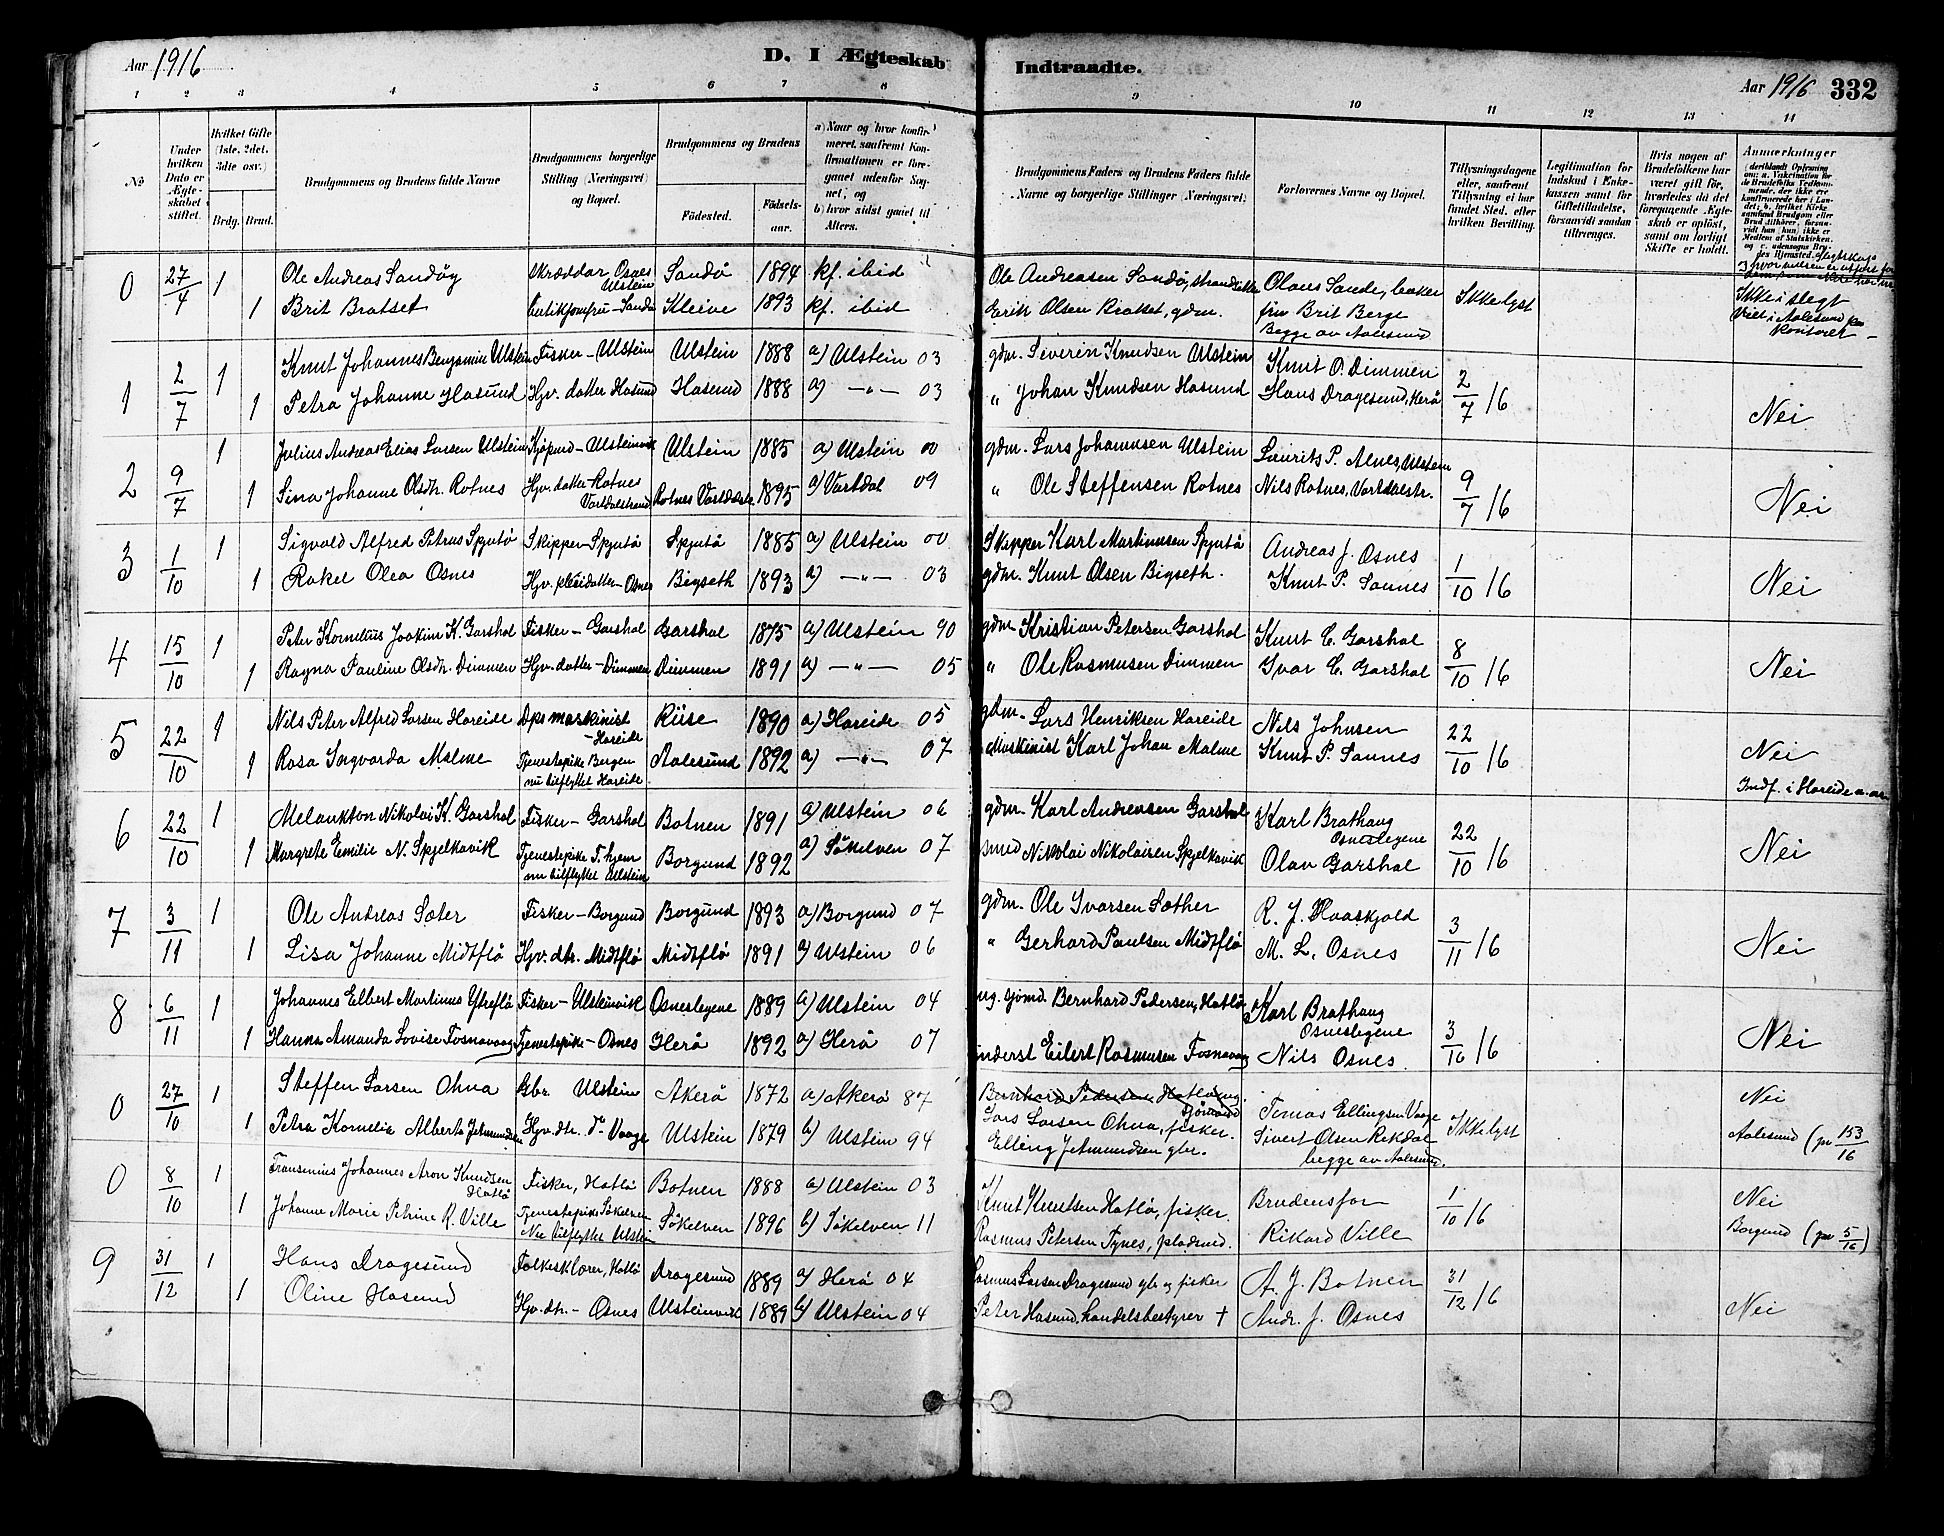 Aar 1916
D. I Ægteskab Indtraadte.
Aar 1916 332
1 2 3 4 5 6 7 8 9 10 11 12 13 14
No
Under hvilken Dato er Ægteskabet stiftet.
Hvilket Gifte (1ste, 2det, 3die osv.)
Brdg. Brud.
Brudgommens og Brudens fulde Navne
Brudgommens borgerlige Stilling (Næringsvei) og Bopæl.
Brudgommens og Brudens
Födested.
Födsels-aar.
a) Naar og hvor konfirmeret, saafremt Konfirmationen er foregaaet udenfor Sognet; og
b) hvor sidst gaaet til Alters.
Brudgommens Faders og Brudens Faders fulde Navne og borgerlige Stillinger (Næringsvei).
Forlovernes Navne og Bopæl.
Tillysningsdagene eller, saafremt Tillysning ei har fundet Sted, efter hvilken Bevilling.
Legitimation for Indskud i Enkekassen samt for Giftetilladelse, forsaavidt saadan tiltrænges.
Hvis nogen af Brudefolkene har været gift för, hvorledes da det foregaaende Ægteskab er oplöst, samt om lovligt Skifte er holdt.
Anmærkninger
0 27/4 1 Ole Andreas Sandöy Skræddar Osnes Ulstein Sandö 1894 kf. ibid Ole Andreasen Sandö, strandsidder Olaus Sande, baker Ikke lyst Ikke i slegt
1 Brit Bratset butikjomfru - Sandö Kleive 1893 kf. ibid Erik Olsen Bratset, gdm. fru Brit Berge Begge av Aalesund Viet i Aalesund kontorer
1 2/7 1 Knut Johannes Benjamin Ulstein Fisker - Ulstein Ulstein 1888 a) Ulstein 03 gdm. Severin Knudsen Ulstein Knut O. Dimmen 2/7/16 Nei
1 Petra Johanne Hasund Hjv. datter Hasund Hasund 1888 a) -"- 03 " Johan Knudsen Hasund Hans Dragesund, Herö
2 9/7 1 Julius Andreas Elias Larsen Ulstein Kjöpmd - Ulsteinvik Ulstein 1885 a) Ulstein 00 gdm. Lars Johannesen Ulstein Laurits P. Alnes, Ulstein 9/7/16 Nei
1 Sina Johanne Olsdtr. Rotnes Hjv. datter - Rotnes Vartdalstrand Rotnes Vartdalstr. 1895 a) Vartdal 09 " Ole Steffensen Rotnes Nils Rotnes, Vartdalstr.
3 1/10 1 Sigvald Alfred Petrus Spjutö Skipper - Spjutö Spjutö 1885 a) Ulstein 00 Skipper Karl Martinusen Spjutö Andreas J. Osnes 1/10/16 Nei
1 Rakel Olea Osnes Hjv. pleiedatter - Osnes Bigseth 1893 a) -"- 03 gdm. Knut Olsen Bigseth. Knut P. Sannes
4 15/10 1 Peter Kornelius Joakim K. Garshol Fisker - Garshol Garshol 1875 a) Ulstein 90 gdm. Kristian Petersen Garshol Knut C. Garshol 8/10/16 Nei
1 Ragna Pauline Olsdtr. Dimmen Hjv. datter - Dimmen Dimmen 1891 a) -"- 05 " Ole Rasmusen Dimmen Ivar C. Garshol
5 22/10 1 Nils Peter Alfred Larsen Hareide Dps maskinist - Hareide Riise 1890 a) Hareide 05 gdm. Lars Henriksen Hareide Nils Johnsen 22/10/16 Nei
1 Rosa Ingvarda Malme Tjenestepike Bergen nu tilflyttet Hareide Aalesund 1892 a) -"- 07 Maskinist Karl Johan Malme Knut P. Sannes Indf. i Hareide
6 22/10 1 Melankton Nikolai K. Garshol Fisker - Garshol Botnen 1891 a) Ulstein 06 gdm. Karl Andreasen Garshol Karl Brathaug Osneslegene 22/10/16 Nei
1 Margrete Emilie N. Spjelkavik Tjenestepike T. hjem nu tilflyttet Ulstein Borgund 1892 a) Sökelven 07 smed Nikolai Nikolaisen Spjelkavik Olav Garshol
7 3/11 1 Ole Andreas Sæter Fisker - Borgund Borgund 1893 a) Borgund 07 gdm. Ole Ivarsen Sæther R. J. Haaskjold 3/11/16 Nei
1 Lisa Johanne Midtflö Hjv. dtr. Midtflö Midtflö 1891 a) Ulstein 06 " Gerhard Paulsen Midtflö M. L. Osnes
8 6/11 1 Johannes Elbert Martinus Ytreflö Fisker - Ulsteinvik Osneslegene 1889 a) Ulstein 04 ug. sjömd. Bernhard Pedersen, Hatlö Karl Brathaug Osneslegene 3/10/16 Nei
1 Hanna Amanda Lovise Fosnavaag Tjenestepike - Osnes Herö 1892 a) Herö 07 inderst Eilert Rasmusen Fosnavaag Nils Osnes
0 27/10 1 Steffen Larsen Ohna Gbr. Ulstein Akerö 1872 a) Akerö 87 Bernhard Pedersen Hatlö ug. sjömand Lars Larsen Ohna, fisker. Tomas Ellingsen Vaage Ikke lyst Nei
1 Petra Kornelia Alberta Jetmundsen Hjv. dtr. Vaage Ulstein 1879 b) Ulstein 94 Elling Jetmundsen gbr. Sivert Olsen Rekdal begge av Aalesund. Aalesund (pr 153/16
0 8/10 1 Fransenius Johannes Aron Knudsen Hatlö Fisker, Hatlö Botnen 1888 a) Ulstein 03 Knut Knutsen Hatlö, fisker. Brudens far 1/10/16 Nei
1 Johanne Marie Petrine R. Ville Tjenestepike Sökelven Nu tilflyttet Ulstein Sökelven 1896 b) Sökelven 11 Rasmus Petersen Tynes, pladsmd. Rikard Ville Borgund (pr 5/16)
9 31/12 1 Hans Dragesund Folkeskolelærer, Hatlö Dragesund 1889 a) Herö 04 Rasmus Larsen Dragesund gbr og fisker A. J. Botnen 31/12/16 Nei
1 Oline Hasund Hjv. dtr. - Osnes Ulsteinvik 1889 b) Ulstein 04 Peter Hasund, handelsbestyrer † Andr. J. Osnes